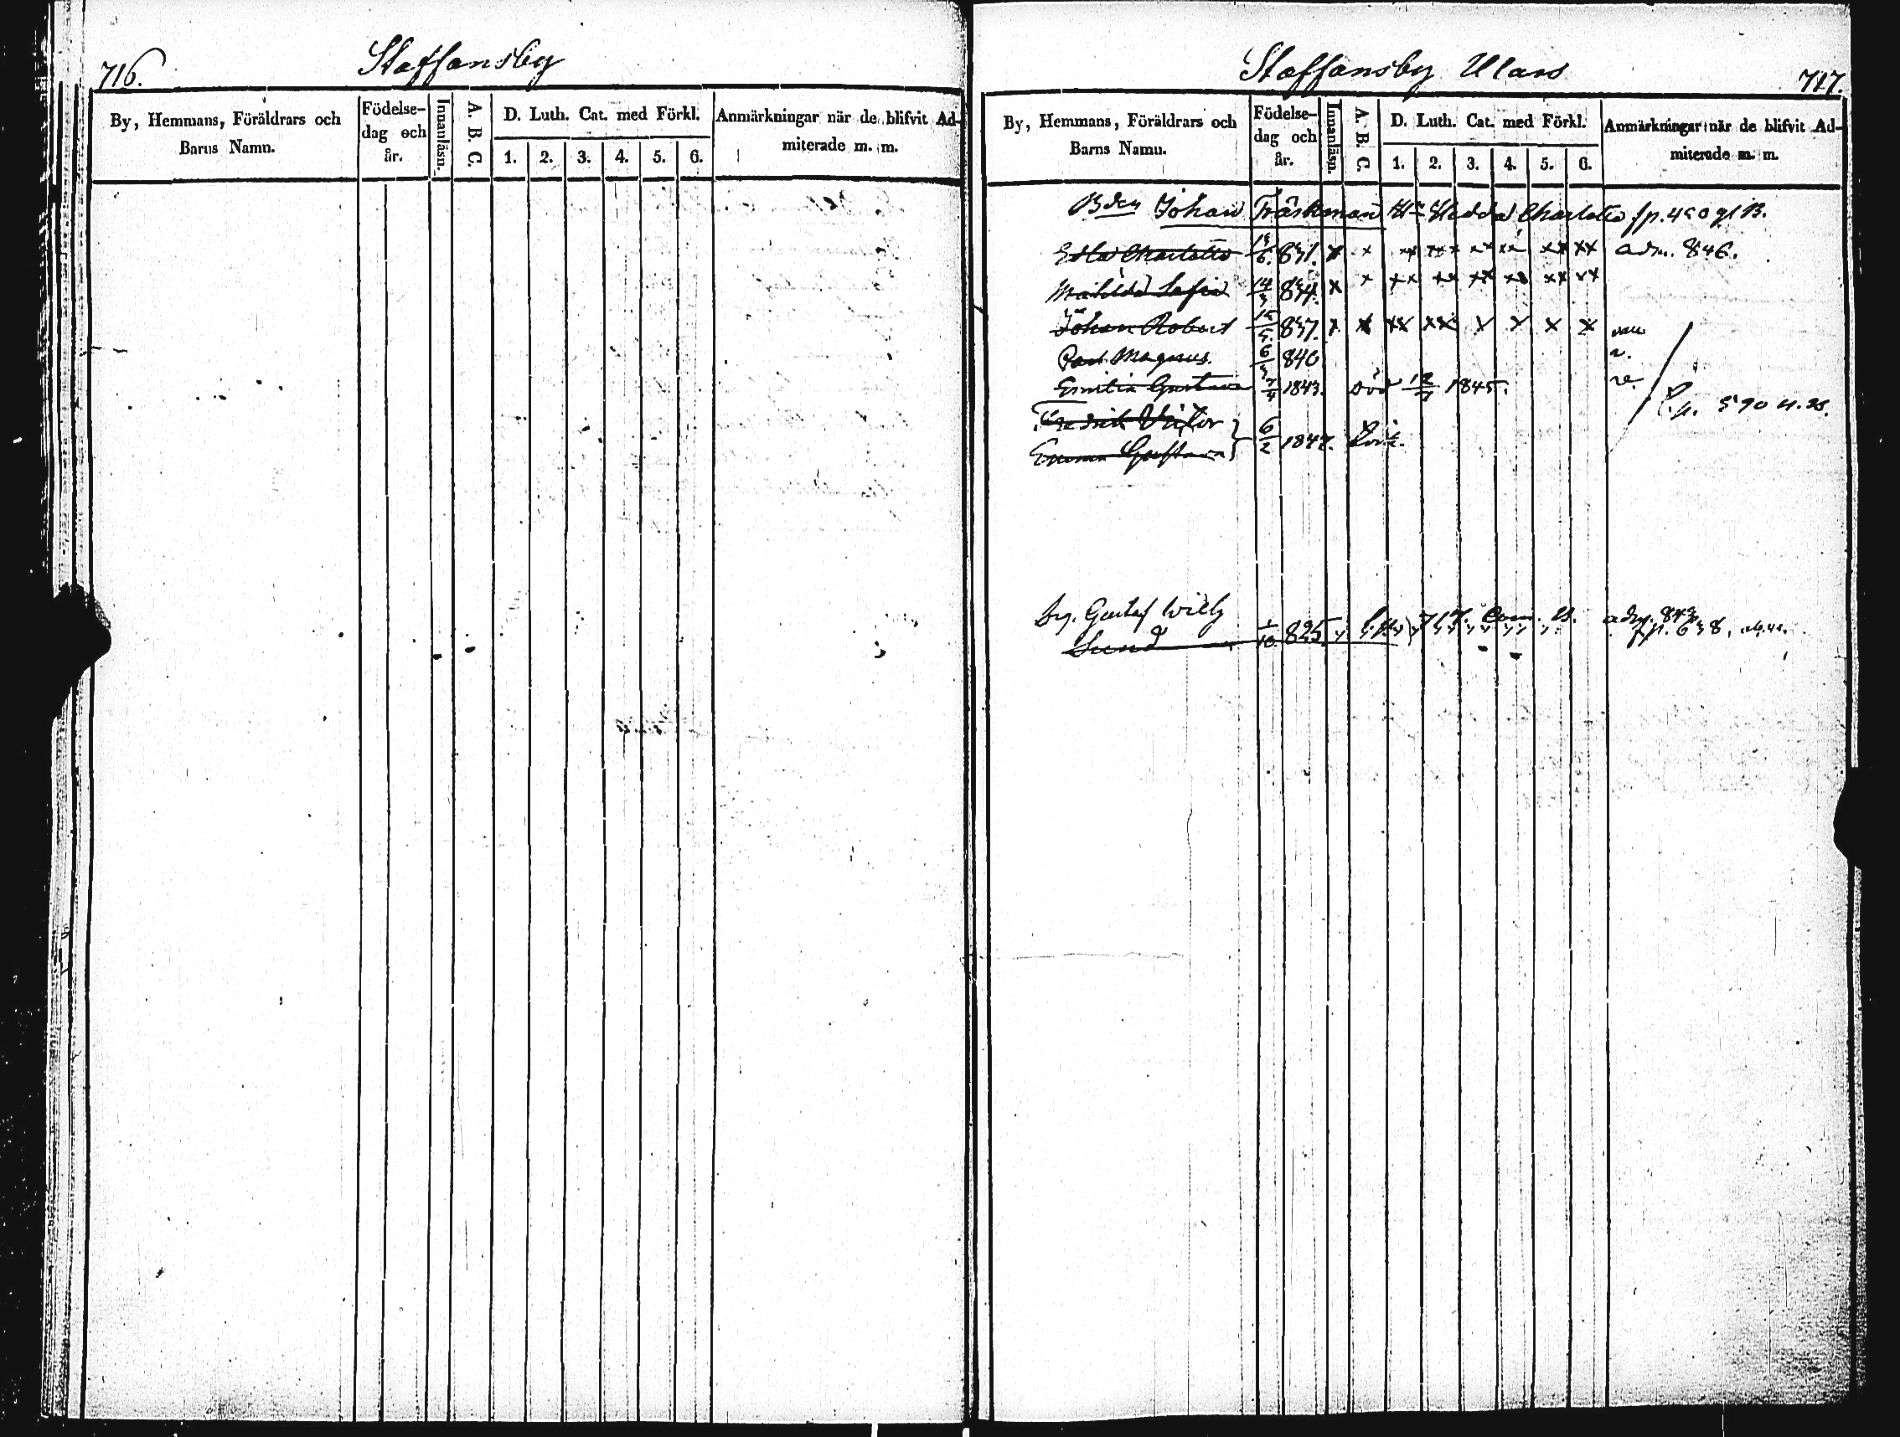 716.
Staffansby
By, Hemmans, Föräldrars och
Barns Namn.
Födelse-
dag och
år.
Innanläsn.
A. B. C.
D. Luth. Cat. med Förkl.
1. 2. 3. 4. 5. 6.
Anmärkningar när de blifvit Ad-
miterade m. m.
Staffansby Ulars
717.
By, Hemmans, Föräldrars och
Barns Namn.
Födelse-
dag och
år.
Innanläsn.
A. B. C.
D. Luth. Cat. med Förkl.
1. 2. 3. 4. 5. 6.
Anmärkningar när de blifvit Ad-
miterade m. m.
Johan Träskman Hedda Charlotta
Edla Charlotta 831. x x xx xx xx xx xx xx adm. 846.
Mathilda Sofia 834. x x xx xx xx xx xx xx
Johan Robert 837. x x xx xx x x x x
Carl Magnus 6/3 840
Emilia Gustava 1843. död 1845.
Fredrik Victor
Emma Gustava } 6/2 1847.
590
Gustaf Wilh
Sund 1/10 825 717. adm. 843